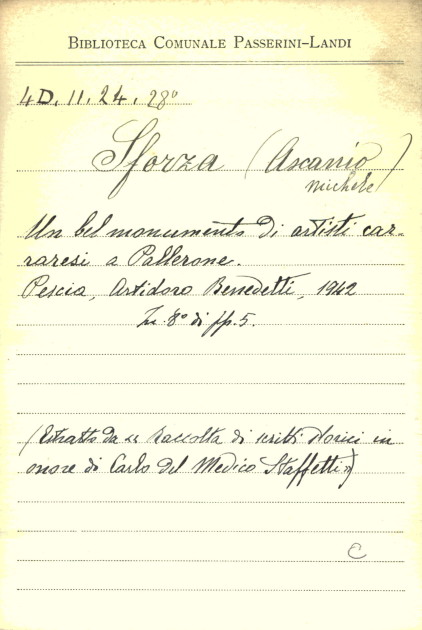 BIBLIOTECA COMUNALE PASSERINI-LANDI
4D. 11. 24. 28°
Sforza (Ascanio)
michele
Un bel monumento di artisti car-
raresi a Pallerone.
Pescia, Artidoro Benedetti, 1942
In 8° di pp. 5.
(Estratto da « Raccolta di scritti storici in
onore di Carlo Del Medico Staffetti»)
C